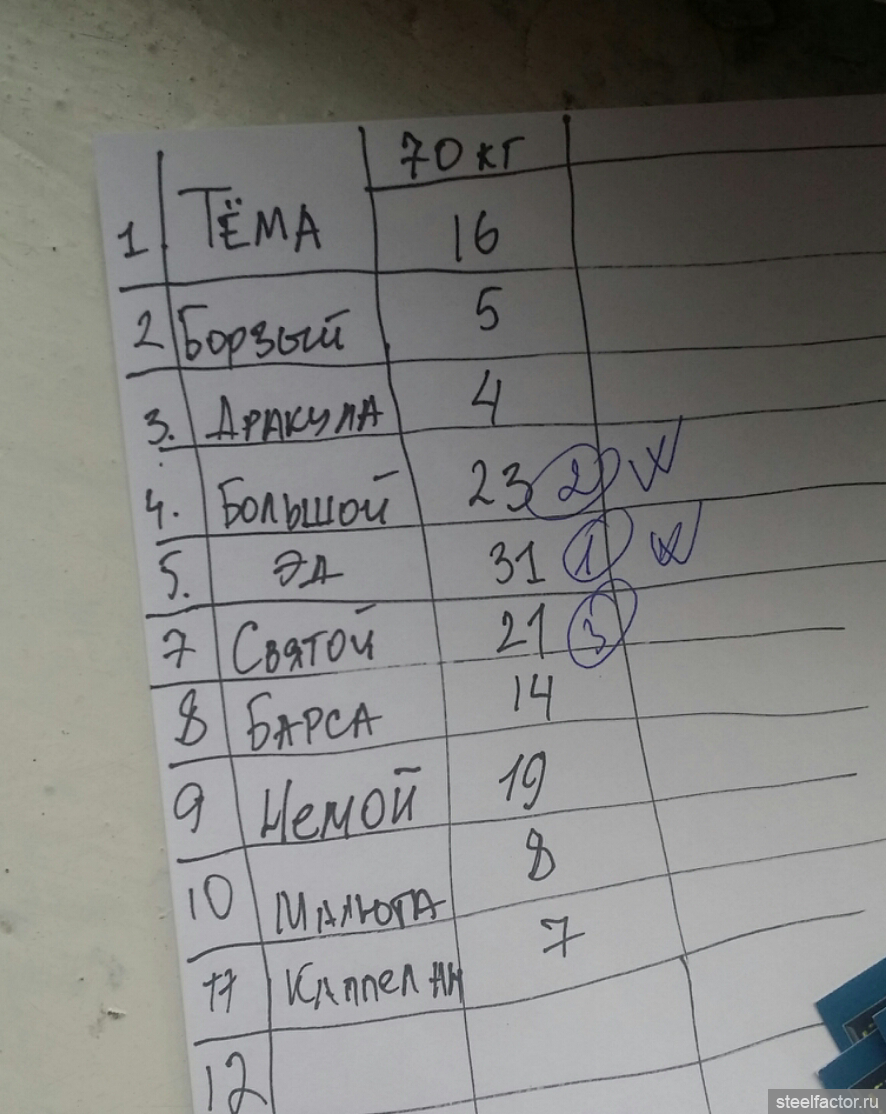 70 кг
1 ТЁМА 16
2 Борзый 5
3. ДРАКУЛА 4
4. Большой 23 2
5. ЭД 31 1
7 Святой 21 3
8 БАРСА 14
9 Немой 19
10 МАЛЮТА 8
11 Каппелан 7
12
steelfactor.ru